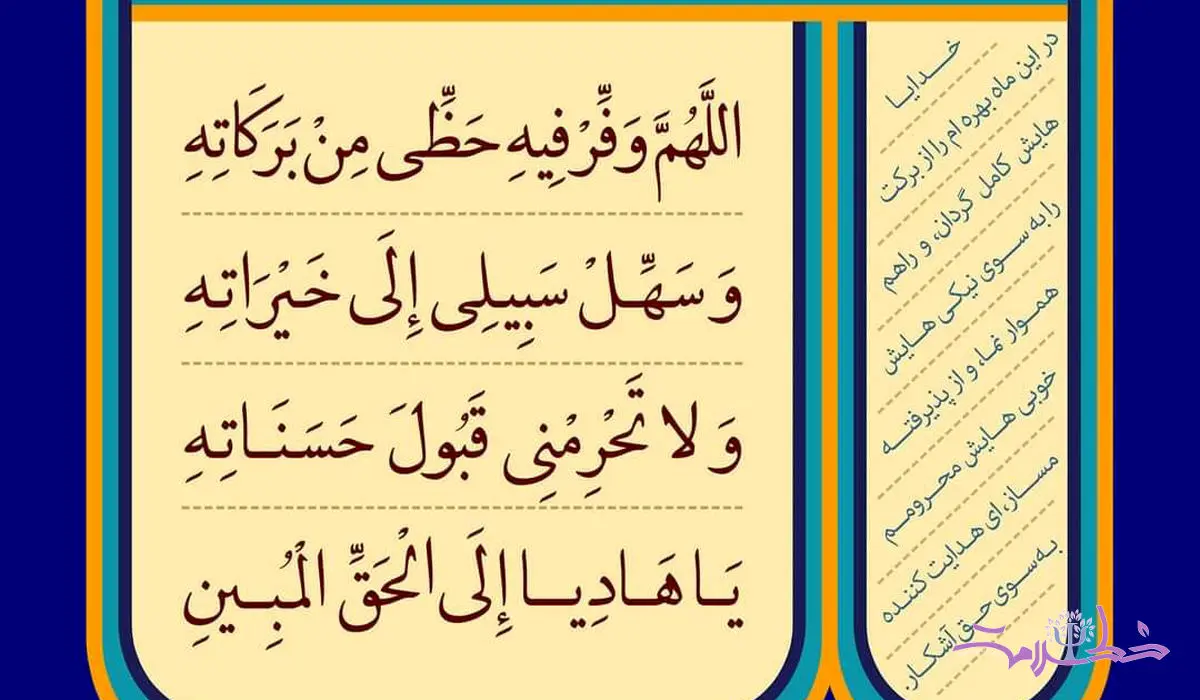 اللَّهُمَّ وَفِّرْ فِيهِ حَظِّی مِنْ بَرَكَاتِهِ
وَ سَهِّلْ سَبِیلِی إِلَى خَيْرَاتِهِ
وَ لا تَحْرِمْنِی قَبُولَ حَسَنَاتِهِ
يَا هَادِيا إِلَى الْحَقِّ الْمُبِينِ
خدایا
در این ماه بهره ام را از برکت
هایش کامل گردان، و راهم
را به سوی نیکی هایش
هموار نما، و از پذیرفته
خوبی هایش محرومم
مساز، ای هدایت کننده
به سوی حق آشکار.
خط سلامت